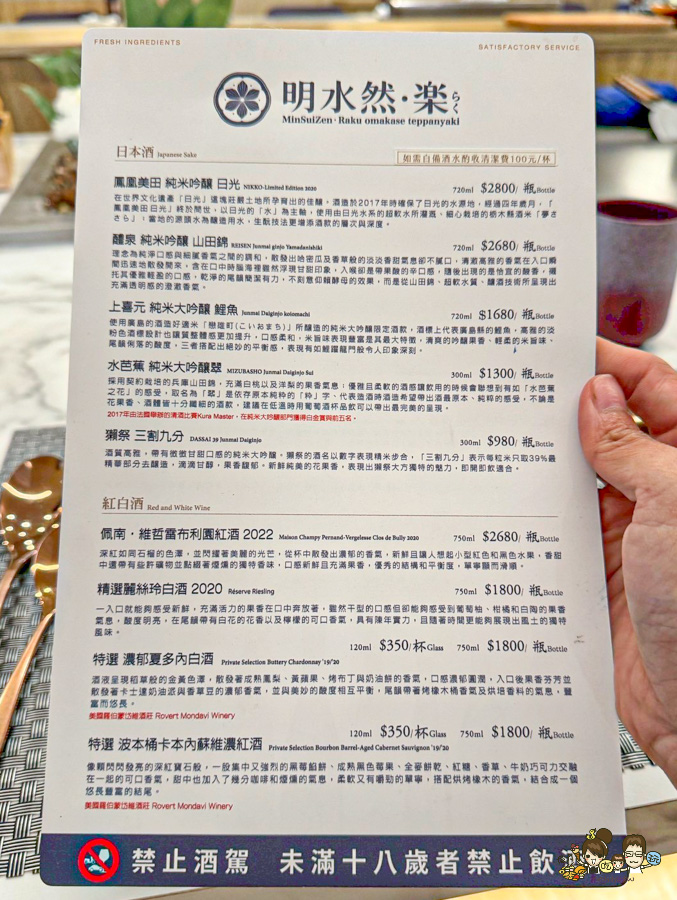 FRESH INGREDIENTS
SATISFACTORY SERVICE
明水然・楽
らく
MinSuiZen・Raku omakase teppanyaki
日本酒 Japanese Sake
如需自備酒水酌收清潔費100元/杯
鳳凰美田 純米吟釀 日光 NIKKO-Limited Edition 2020 720ml $2800/ 瓶Bottle
在世界文化遺產「日光」這塊莊嚴土地所孕育出的佳釀。酒造於2017年時確保了日光的水源地，經過四年歲月，「
鳳凰美田 日光」終於問世，以日光的「水」為主軸，使用由日光水系的超軟水所灌溉、細心栽培的栃木縣酒米「夢さ
さら」；當地的源頭水為釀造用水，生酛技法更增添酒款的層次與深度。
醴泉 純米吟釀 山田錦 REISEN Junmai ginjo Yamadanishiki 720ml $2680/ 瓶Bottle
理念為純淨口感與細膩香氣之間的調和，散發出哈密瓜及香草般的淡淡香甜氣息卻不膩口，清澈高雅的香氣在入口瞬
間迅速地散發開來，含在口中時腦海裡竟然浮現甘甜印象，入喉卻是帶果酸的辛口感，隨後出現的是恰宜的酸香，襯
托其優雅輕盈的口感，乾淨的尾韻簡潔有力，不刻意仰賴酵母的效果，而是從山田錦、超軟水質、釀酒技術所呈現出
充滿透明感的澄澈香氣。
上喜元 純米大吟釀 鯉魚 Junmai Daiginjo kotomachi 720ml $1680/ 瓶Bottle
使用廣島的酒造好適米「戀雄町(こいおまち)」所釀造的純米大吟釀限定酒款，酒標上代表廣島縣的鯉魚，高雅的淡
粉色酒標設計也讓質整體感更加提升，口感柔和，米旨味表現豐富是其最大特徵，清爽的吟釀果香、輕柔的米旨味、
尾韻俐落的酸度，三者搭配出絕妙的平衡感，表現有如鯉躍龍門般令人印象深刻。
水芭蕉 純米大吟釀翠 MIZUBASHO Junmai Daiginjo Sui 300ml $1300/ 瓶Bottle
採用契約栽培的兵庫山田錦，充滿白桃以及洋梨的果香氣息；優雅且柔軟的酒感讓飲用的時候會聯想到有如「水芭蕉
之花」的感受，取名為「翠」是依存原本純粋的「粋」字、代表造酒時酒造希望帶出酒最原本、純粹的感受，不論是
花果香、酒體皆十分纖細的酒款，建議在低溫時用葡萄酒杯品飲可以帶出最完美的呈現。
2017年由法國舉辦的清酒比賽Kura Master，在純米大吟釀部門獲得白金賞與前五名。
獺祭 三割九分 DASSAI 39 Junmai Daiginjo 300ml $980/ 瓶Bottle
酒質高雅，帶有微微甘甜口感的純米大吟釀。獺祭的酒名以數字表現精米步合，「三割九分」表示每粒米只取39%最
精華部分去釀造，滴滴甘醇，果香馥郁。新鮮純美的花果香，表現出獺祭大方獨特的魅力，即開即飲適合。
紅白酒 Red and White Wine
佩南・維哲雷布利園紅酒 2022 Maison Champy Pernand-Vergelesse Clos de Bully 2020 750ml $2680/ 瓶Bottle
深紅如同石榴的色澤，並閃耀著美麗的光芒，從杯中散發出濃郁的香氣，新鮮且讓人想起小型紅色和黑色水果，香甜
中還帶有些許礦物並點綴著煙燻的獨特香味，口感新鮮且充滿果香，優秀的結構和平衡度，單寧顯而滑順。
精選麗絲玲白酒 2020 Réserve Riesling 750ml $1800/ 瓶Bottle
一入口就能夠感受新鮮，充滿活力的果香在口中奔放著，雖然干型的口感但卻能夠感受到葡萄柚、柑橘和白陶的果香
氣息，酸度明亮，在尾韻帶有白花的花香以及檸檬的可口香氣，具有陳年實力，且隨著時間更能夠展現出風土的獨特
風味。
120ml $350/杯Glass 750ml $1800/ 瓶Bottle
特選 濃郁夏多內白酒 Private Selection Buttery Chardonnay '19/20
酒液呈現稻草般的金黃色澤，散發著成熟鳳梨、黃蘋果、烤布丁與奶油餅的香氣，口感濃郁圓潤，入口後果香芬芳並
散發著卡士達奶油派與香草豆的濃郁香氣，並與美妙的酸度相互平衡，尾韻帶著烤橡木桶香氣及烘培香料的氣息，豐
富而悠長。
美國羅伯蒙岱維酒莊 Rovert Mondavi Winery
120ml $350/杯Glass 750ml $1800/ 瓶Bottle
特選 波本桶卡本內蘇維濃紅酒 Private Selection Bourbon Barrel-Aged Cabernet Sauvignon '19/20
像顆閃閃發亮的深紅寶石般，一股集中又強烈的黑莓餡餅、成熟黑色莓果、全麥餅乾、紅糖、香草、牛奶巧可力交融
在一起的可口香氣，甜中也加入了幾分咖啡和煙燻的氣息，柔軟又有嚼勁的單寧，搭配烘烤橡木的香氣，結合成一個
悠長豐富的結尾。
美國羅伯蒙岱維酒莊 Rovert Mondavi Winery
禁止酒駕 未滿十八歲者禁止飲